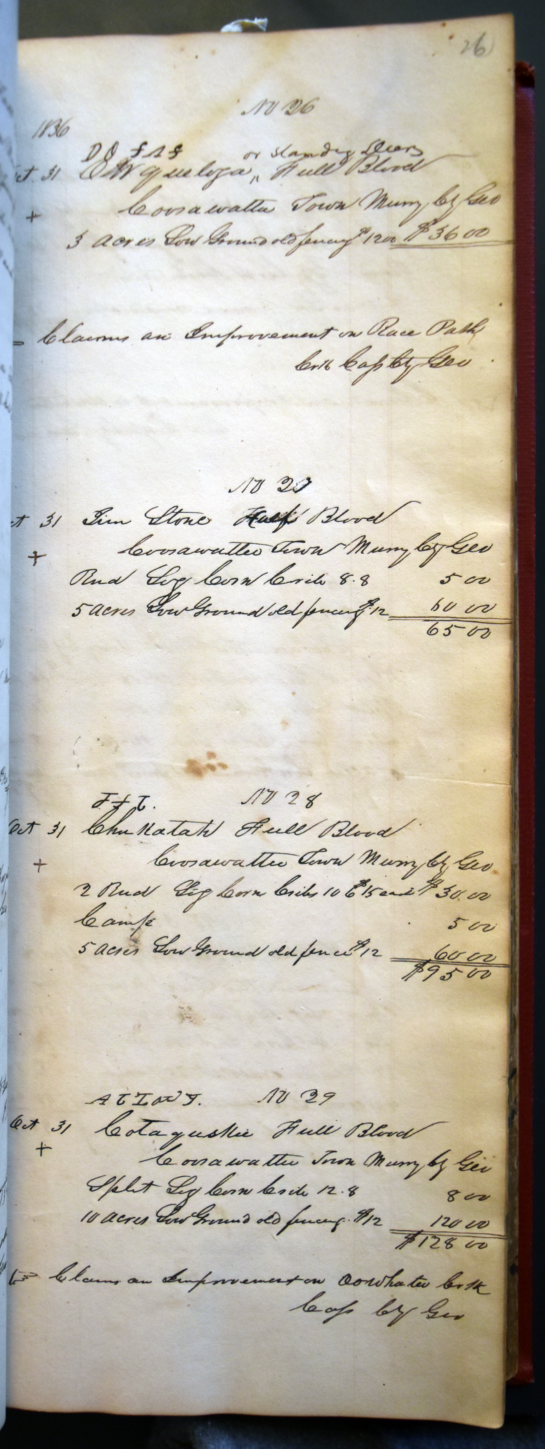 26
No 26
1836
or Standing Deer
Oct 31 Full Blood
+ Coosawattee Town Murry Cty Geo
3 acres Low Ground old fencing $12 00 $36 00
Claims an Improvement on Race Path
Crk Cass Cty Geo
No 27
Oct 31 Jim Stone Blood
+ Coosawattee Town Murry Cty Geo
Rud Log Corn Crib 8.8 5 00
5 acres Low Ground old fencing $12 60 00
65 00
No 28
Oct 31 Chukatah Full Blood
+ Coosawattee Town Murry Cty Geo
2 Rud Log Corn Cribs 10 @ $15 each $30.00
Camp 5 00
5 acres Low Ground old fence $12 60 00
$95 00
No 29
Oct 31 Cotaquskee Full Blood
+ Coosawattee Town Murry Cty Geo
Split Log Corn Crib 12.8 8 00
10 acres Low Ground old fencing $12 120 00
$128 00
Claims an Improvement on Crk
Cass Cty Geo